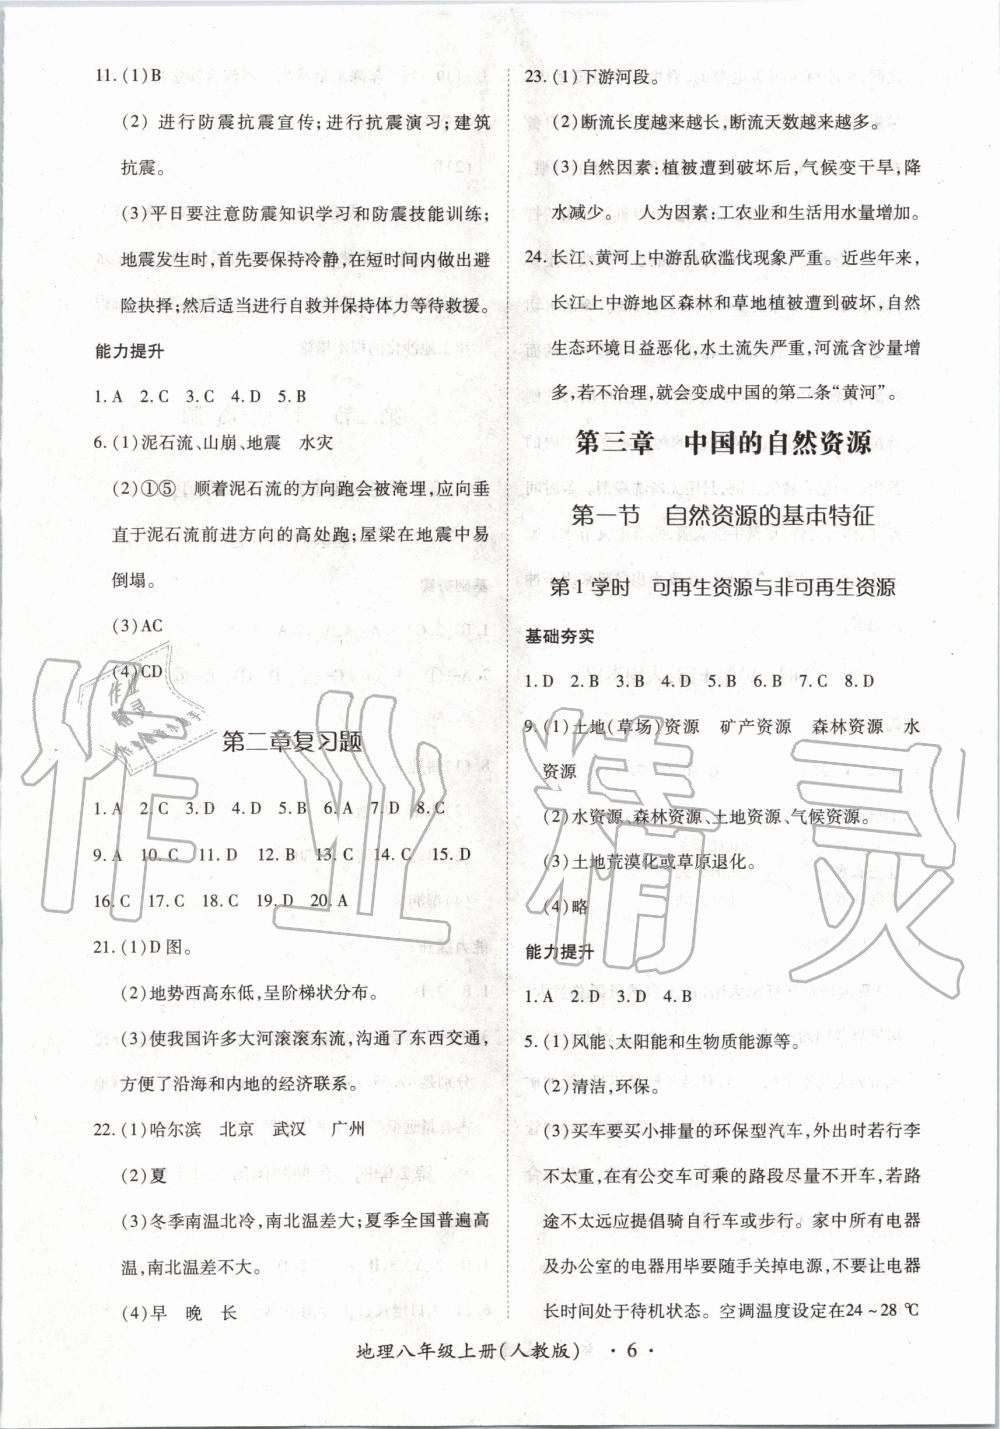 11. (1)B
(2) 进行防震抗震宣传;进行抗震演习;建筑
抗震。
(3)平日要注意防震知识学习和防震技能训练;
地震发生时,首先要保持冷静,在短时间内做出避
险抉择;然后适当进行自救并保持体力等待救援。
能力提升
1. A 2. C 3. C 4. D 5. B
6. (1)泥石流、山崩、地震 水灾
(2)①⑤ 顺着泥石流的方向跑会被淹埋,应向垂
直于泥石流前进方向的高处跑;屋梁在地震中易
倒塌。
(3)AC
(4)CD
第二章复习题
1. A 2. C 3. D 4. D 5. B 6. A 7. D 8. C
9. A 10. C 11. D 12. B 13. C 14. C 15. D
16. C 17. C 18. C 19. D 20. A
21. (1)D图。
(2)地势西高东低,呈阶梯状分布。
(3)使我国许多大河滚滚东流,沟通了东西交通,
方便了沿海和内地的经济联系。
22. (1)哈尔滨 北京 武汉 广州
(2)夏
(3)冬季南温北冷,南北温差大;夏季全国普遍高
温,南北温差不大。
(4)早 晚 长
23. (1)下游河段。
(2)断流长度越来越长,断流天数越来越多。
(3)自然因素:植被遭到破坏后,气候变干旱,降
水减少。 人为因素:工农业和生活用水量增加。
24. 长江、黄河上中游乱砍滥伐现象严重。近些年来,
长江上中游地区森林和草地植被遭到破坏,自然
生态环境日益恶化,水土流失严重,河流含沙量增
多,若不治理,就会变成中国的第二条“黄河”。
第三章 中国的自然资源
第一节 自然资源的基本特征
第1学时 可再生资源与非可再生资源
基础夯实
1. D 2. B 3. B 4. D 5. B 6. B 7. C 8. D
9. (1)土地(草场)资源 矿产资源 森林资源 水
资源
(2)水资源、森林资源、土地资源、气候资源。
(3)土地荒漠化或草原退化。
(4)略
能力提升
1. A 2. D 3. D 4. B
5. (1)风能、太阳能和生物质能源等。
(2)清洁,环保。
(3)买车要买小排量的环保型汽车,外出时若行李
不太重,在有公交车可乘的路段尽量不开车,若路
途不太远应提倡骑自行车或步行。家中所有电器
及办公室的电器用毕要随手关掉电源,不要让电器
长时间处于待机状态。空调温度设定在24~28 ℃
地理八年级上册(人教版) ·6·
作业精灵